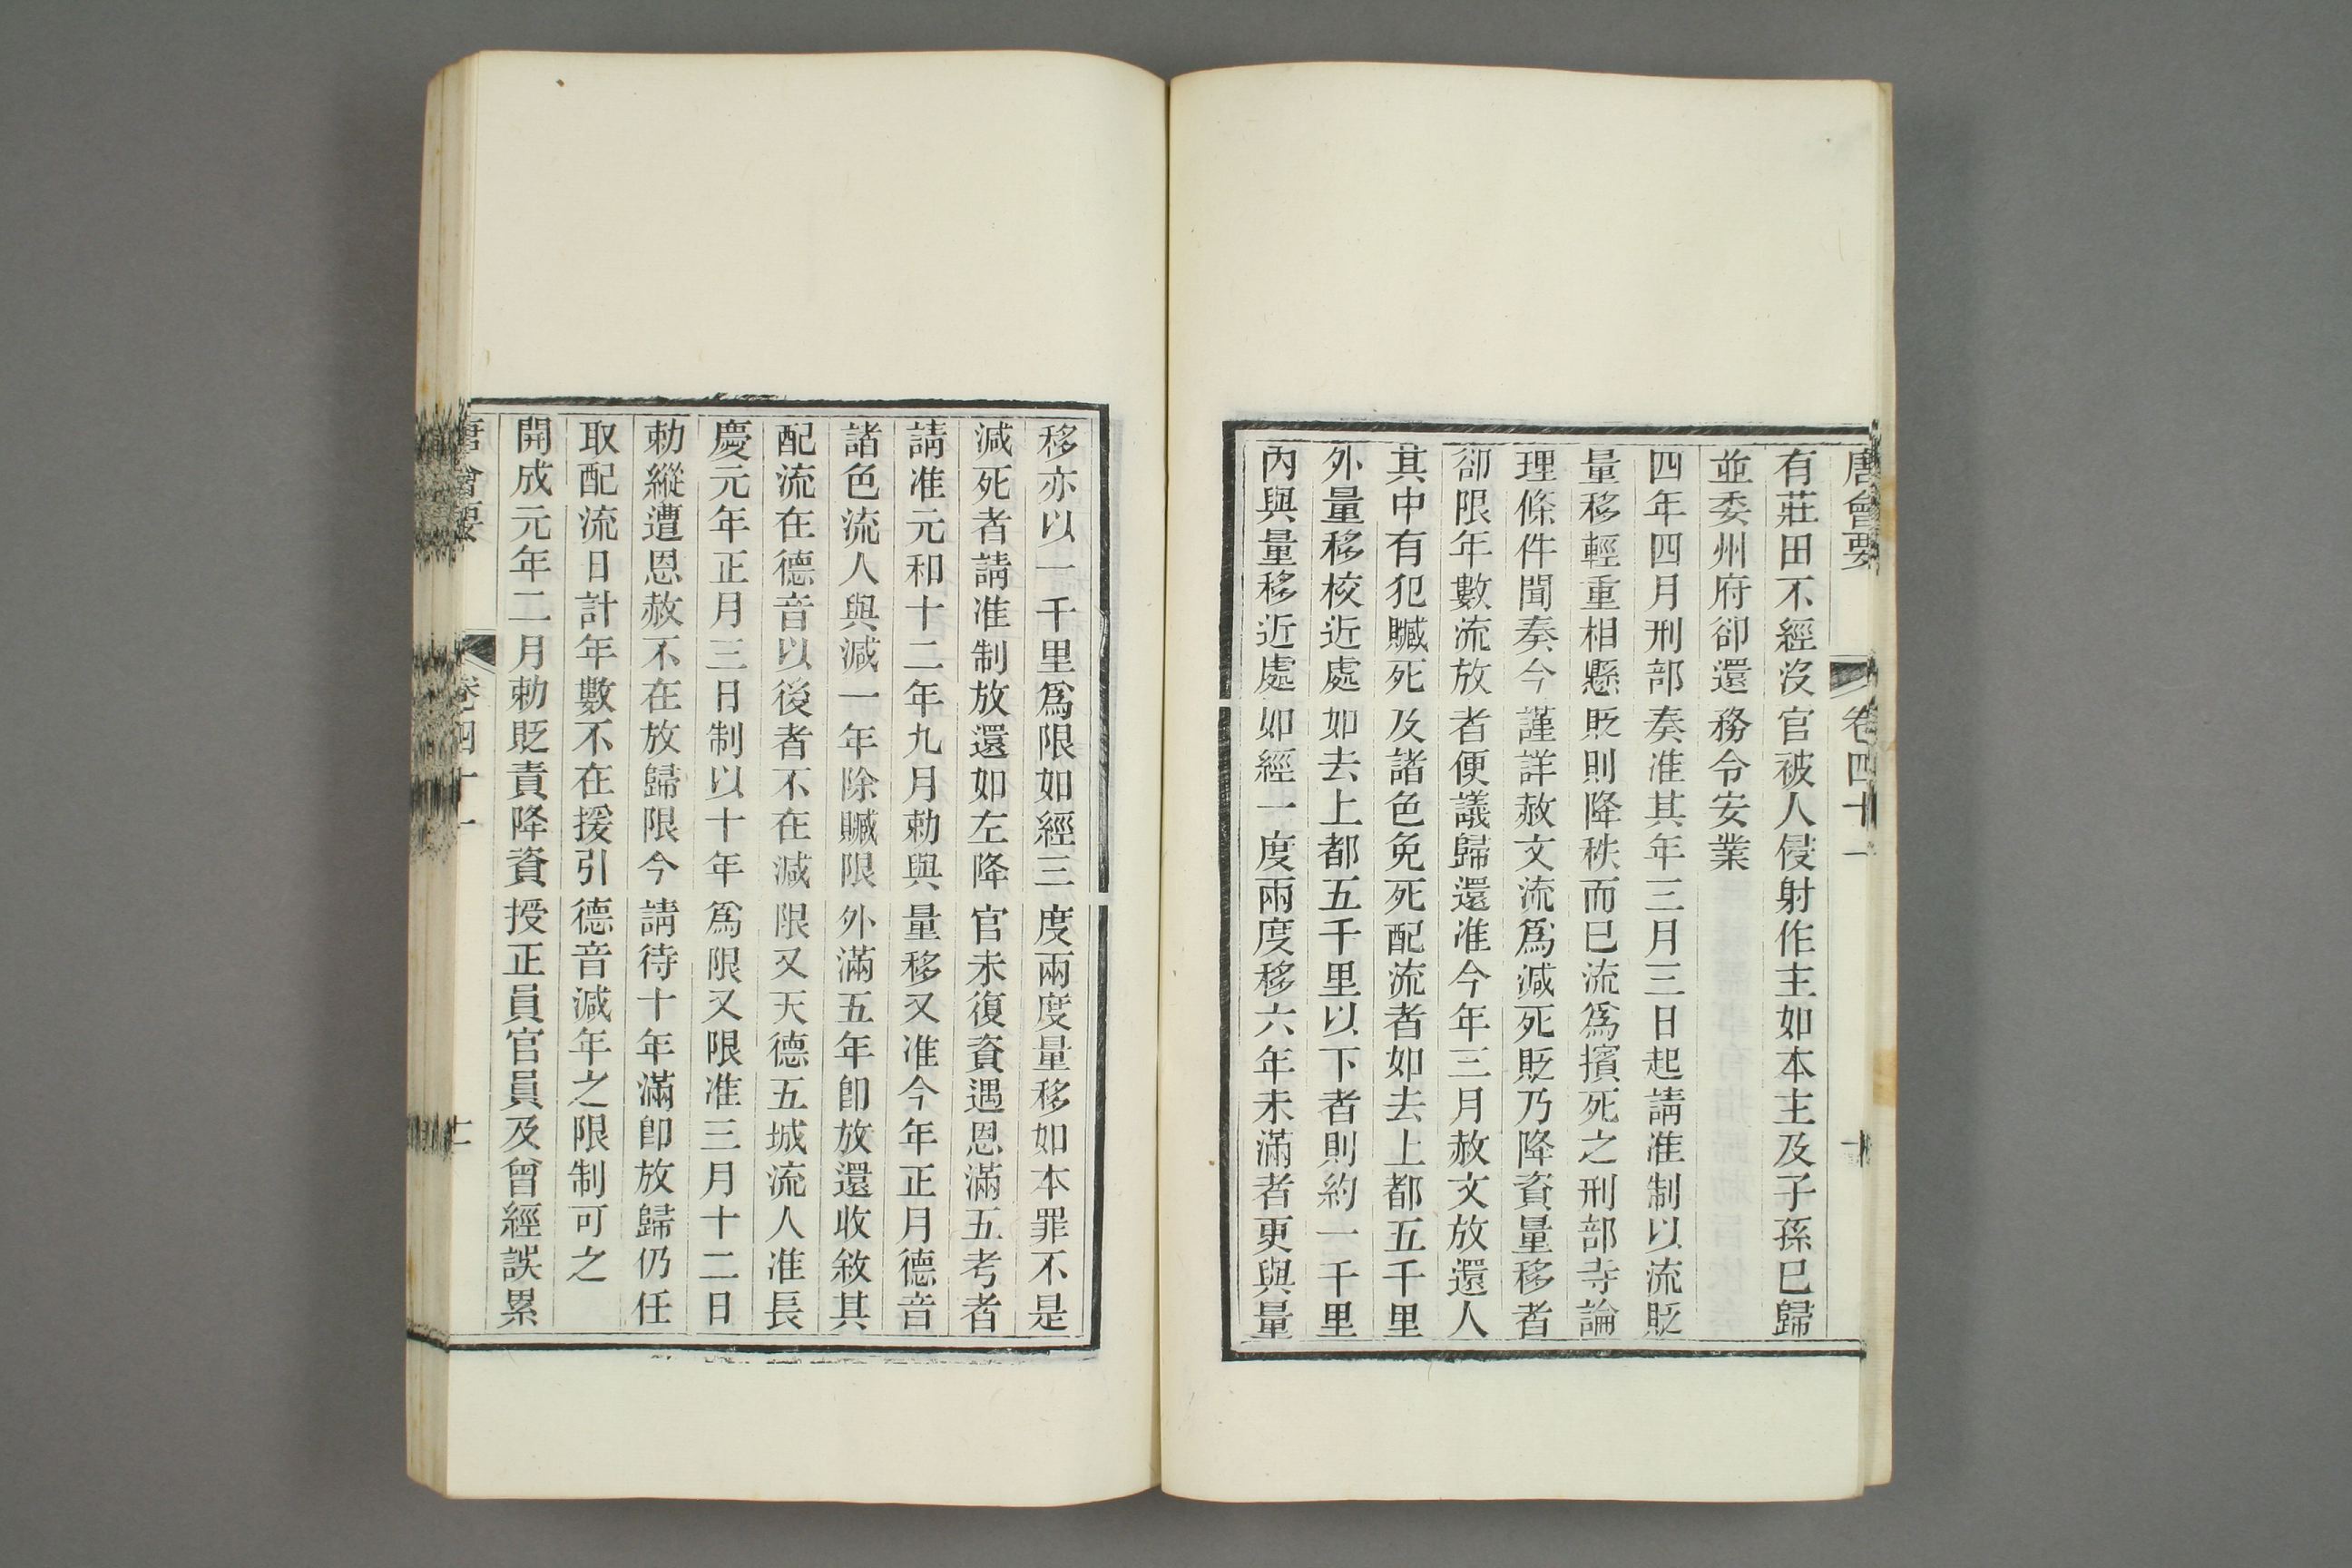 唐會要 卷四十一 十
有莊田不經沒官被人侵射作主如本主及子孫已歸
並委州府卻還務令安業
四年四月刑部奏准其年三月三日起請准制以流貶
量移輕重相懸貶則降秩而已流爲擯死之刑部寺論
理條件聞奏今謹詳赦文流爲減死貶乃降資量移者
卻限年數流放者便議歸還准今年三月赦文放還人
其中有犯贓死及諸色免死配流者如去上都五千里
外量移校近處如去上都五千里以下者則約一千里
內與量移近處如經一度兩度移六年未滿者更與量
移亦以一千里爲限如經三度兩度量移如本罪不是
減死者請准制放還如左降官未復資遇恩滿五考者
請准元和十二年九月勅與量移又准今年正月德音
諸色流人與減一年除贓限外滿五年卽放還收敘其
配流在德音以後者不在減限又天德五城流人准長
慶元年正月三日制以十年爲限又限准三月十二日
勅縱遭恩赦不在放歸限今請待十年滿卽放歸仍任
取配流日計年數不在援引德音減年之限制可之
開成元年二月勅貶責降資授正員官員及曾經誤累
唐會要 卷四十一